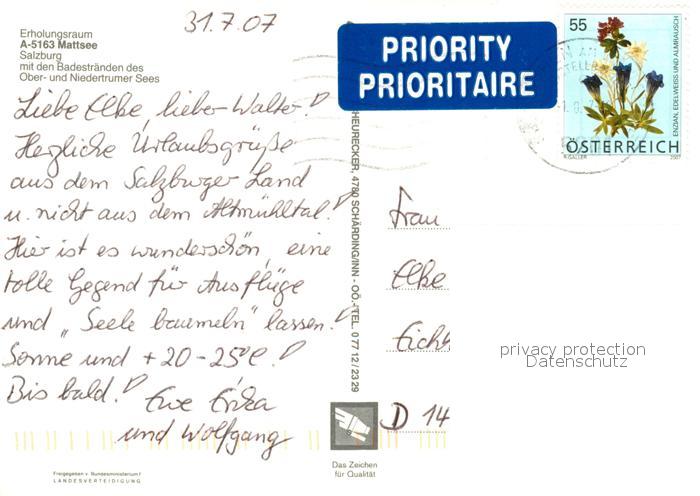 31.7.07
Erholungsraum
A-5163 Mattsee
Salzburg
mit den Badestränden des
Ober- und Niedertrumer Sees
Liebe Elke, lieber Walter!
Herzliche Urlaubsgrüße
aus dem Salzburger Land
u. nicht aus dem Altmühltal!
Hier ist es wunderschön, eine
tolle Gegend für Ausflüge
und „Seele baumeln" lassen!
Sonne und + 20-25°C!
Bis bald! Eure Erika
und Wolfgang
Freigegeben v. Bundesministerium f.
LANDESVERTEIDIGUNG
HEURECKER, 4780 SCHÄRDING/INN - OÖ. - TEL. 0 77 12 / 23 29
Das Zeichen
für Qualität
PRIORITY
PRIORITAIRE
55
ENZIAN, EDELWEISS UND ALMRAUSCH
ÖSTERREICH
2007
Frau
Elke
D 14
privacy protection
Datenschutz